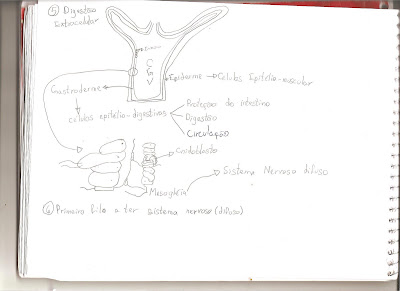 ⑤ Digestão
Extracelular
Enzimas
C
G
V
Epiderme → Celulas Epitélio-muscular
Gastroderme
Celulas epitélio-digestivas
Proteçao do intestino
Digestão
Circulação
Cnidoblasto
Mesogleia
Sistema Nervoso difuso
⑥ Primeiro filo a ter sistema nervoso (difuso)